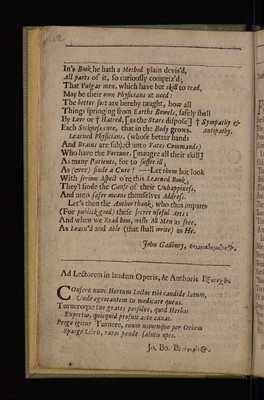 In's Book, he hath a Method plain devis'd,
All parts of it, so curiously compriz'd;
That Vulgar men, which have but skill to read,
May be their own Physicians at need:
The better sort are hereby taught, how all
Things springing from Earths Bowels, safely shall
By Love or † Hatred, [as the Stars dispose] † Sympathy &
Each Sickness cure, that in the Body grows. Antipathy.
Learned Physicians, (whose better hands
And Brains are subject unto Fates Commands)
Who have the Fortune, [maugre all their skill]
As many Patients, for to suffer ill,
As (ever) finde a Cure! — Let them but look
With serious Aspect o're this Learned Book,
They'l finde the Cause of their Unhappiness,
And unto safer means themselves Address.
Let's then the Author thank, who thus imparts
(For publick good) these secret useful Arts:
And when we Read him, wish All Men as free,
As Learn'd and Able (that shall write) as He.
John Gadbury,
Ad Lectorem in laudem Operis, & Authoris
Consere nunc Hortum Lector tibi candide Letum,
Unde agrotantem tu medicare queas.
Turneroque tuo grates persolve, quod Herbas
Expertas, quicquid profuit arte cavat.
Perge igitur Turnere, tuum nomenque per Orbem
Sparge Libris,
Jo. Bo.